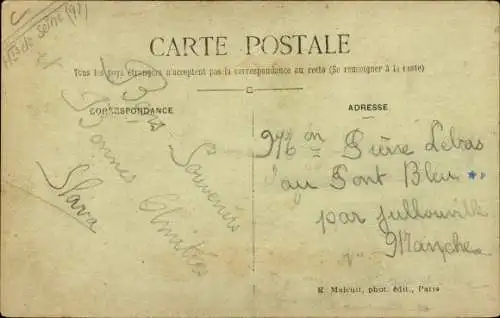 Hts de Seine (92)
CARTE POSTALE
Tous les pays étrangers n'acceptent pas la correspondance au recto (Se renseigner à la poste)
CORRESPONDANCE
ADRESSE
Bons Souvenirs
et Bonnes Amitiés
Slava
Pierre Lebas
au Pont Bleu
par Jullouville
Manche
E. Malcuit, phot. édit., Paris